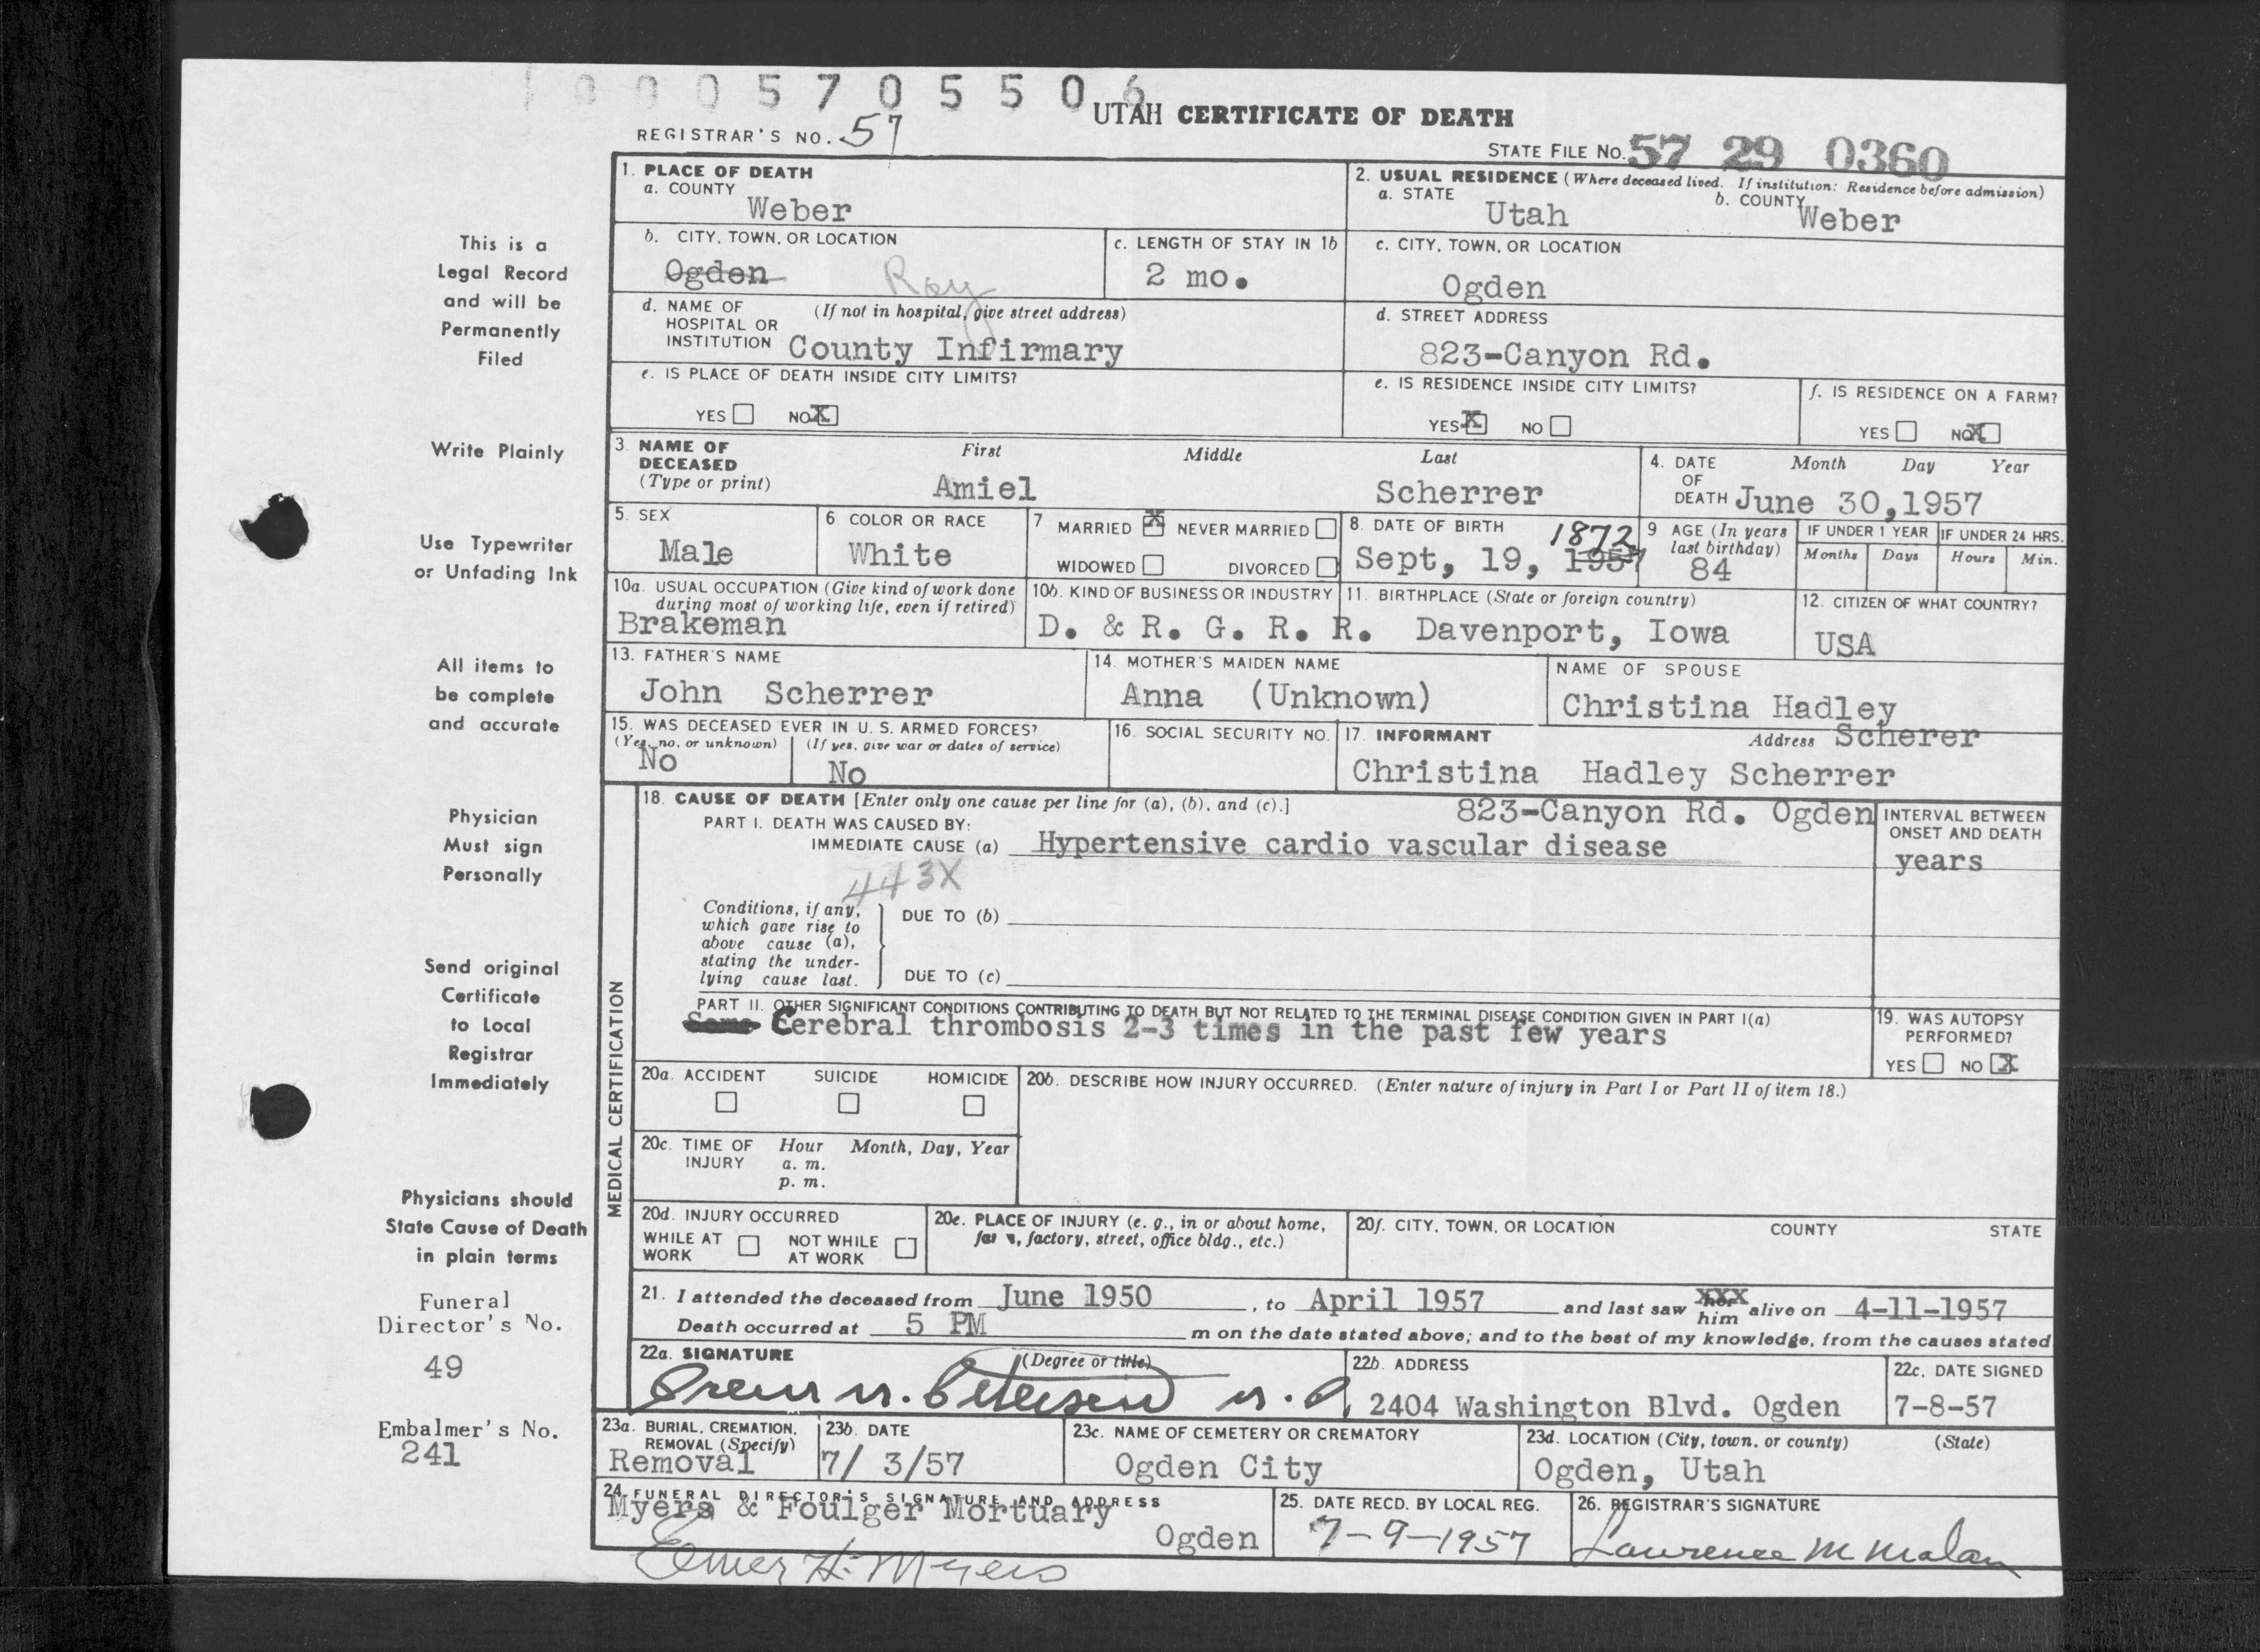 1 0 0 0 5 7 0 5 5 0 6
UTAH CERTIFICATE OF DEATH
REGISTRAR'S NO. 57
STATE FILE NO. 57 29 0360
1. PLACE OF DEATH
a. COUNTY
Weber
2. USUAL RESIDENCE (Where deceased lived. If institution: Residence before admission)
a. STATE Utah b. COUNTY Weber
b. CITY, TOWN, OR LOCATION
Ogden Roy
c. LENGTH OF STAY IN 1b
2 mo.
c. CITY, TOWN, OR LOCATION
Ogden
d. NAME OF HOSPITAL OR INSTITUTION (If not in hospital, give street address)
County Infirmary
d. STREET ADDRESS
823-Canyon Rd.
e. IS PLACE OF DEATH INSIDE CITY LIMITS?
YES NO X
e. IS RESIDENCE INSIDE CITY LIMITS?
YES X NO
f. IS RESIDENCE ON A FARM?
YES NO X
3. NAME OF DECEASED (Type or print)
First Middle Last
Amiel Scherrer
4. DATE OF DEATH Month Day Year
June 30,1957
5. SEX
Male
6 COLOR OR RACE
White
7 MARRIED X NEVER MARRIED
WIDOWED DIVORCED
8. DATE OF BIRTH
1872
Sept, 19, 1957
9 AGE (In years last birthday)
84
IF UNDER 1 YEAR
Months Days
IF UNDER 24 HRS.
Hours Min.
10a. USUAL OCCUPATION (Give kind of work done during most of working life, even if retired)
Brakeman
10b. KIND OF BUSINESS OR INDUSTRY
D. & R. G. R. R.
11. BIRTHPLACE (State or foreign country)
Davenport, Iowa
12. CITIZEN OF WHAT COUNTRY?
USA
13. FATHER'S NAME
John Scherrer
14. MOTHER'S MAIDEN NAME
Anna (Unknown)
NAME OF SPOUSE
Christina Hadley
Scherer
15. WAS DECEASED EVER IN U. S. ARMED FORCES?
(Yes, no, or unknown) (If yes, give war or dates of service)
No No
16. SOCIAL SECURITY NO.
17. INFORMANT Address
Christina Hadley Scherrer
823-Canyon Rd. Ogden
MEDICAL CERTIFICATION
18. CAUSE OF DEATH [Enter only one cause per line for (a), (b), and (c).]
PART I. DEATH WAS CAUSED BY:
IMMEDIATE CAUSE (a) Hypertensive cardio vascular disease
INTERVAL BETWEEN ONSET AND DEATH
years
443X
Conditions, if any, which gave rise to above cause (a), stating the underlying cause last.
DUE TO (b)
DUE TO (c)
PART II. OTHER SIGNIFICANT CONDITIONS CONTRIBUTING TO DEATH BUT NOT RELATED TO THE TERMINAL DISEASE CONDITION GIVEN IN PART I(a)
Cerebral thrombosis 2-3 times in the past few years
19. WAS AUTOPSY PERFORMED?
YES NO X
20a. ACCIDENT SUICIDE HOMICIDE
20b. DESCRIBE HOW INJURY OCCURRED. (Enter nature of injury in Part I or Part II of item 18.)
20c. TIME OF INJURY Hour Month, Day, Year
a. m.
p. m.
20d. INJURY OCCURRED
WHILE AT WORK NOT WHILE AT WORK
20e. PLACE OF INJURY (e. g., in or about home, factory, street, office bldg., etc.)
20f. CITY, TOWN, OR LOCATION COUNTY STATE
21. I attended the deceased from June 1950, to April 1957 and last saw xxx her him alive on 4-11-1957
Death occurred at 5 PM m on the date stated above; and to the best of my knowledge, from the causes stated
22a. SIGNATURE (Degree or title)
M. D.
22b. ADDRESS
2404 Washington Blvd. Ogden
22c. DATE SIGNED
7-8-57
23a. BURIAL, CREMATION, REMOVAL (Specify)
Removal
23b. DATE
7/ 3/57
23c. NAME OF CEMETERY OR CREMATORY
Ogden City
23d. LOCATION (City, town, or county) (State)
Ogden, Utah
24. FUNERAL DIRECTOR'S SIGNATURE AND ADDRESS
Myers & Foulger Mortuary
Ogden
Elmer H. Myers
25. DATE RECD. BY LOCAL REG.
7-9-1957
26. REGISTRAR'S SIGNATURE
Laurence M Malan
This is a
Legal Record
and will be
Permanently
Filed
Write Plainly
Use Typewriter
or Unfading Ink
All items to
be complete
and accurate
Physician
Must sign
Personally
Send original
Certificate
to Local
Registrar
Immediately
Physicians should
State Cause of Death
in plain terms
Funeral
Director's No.
49
Embalmer's No.
241